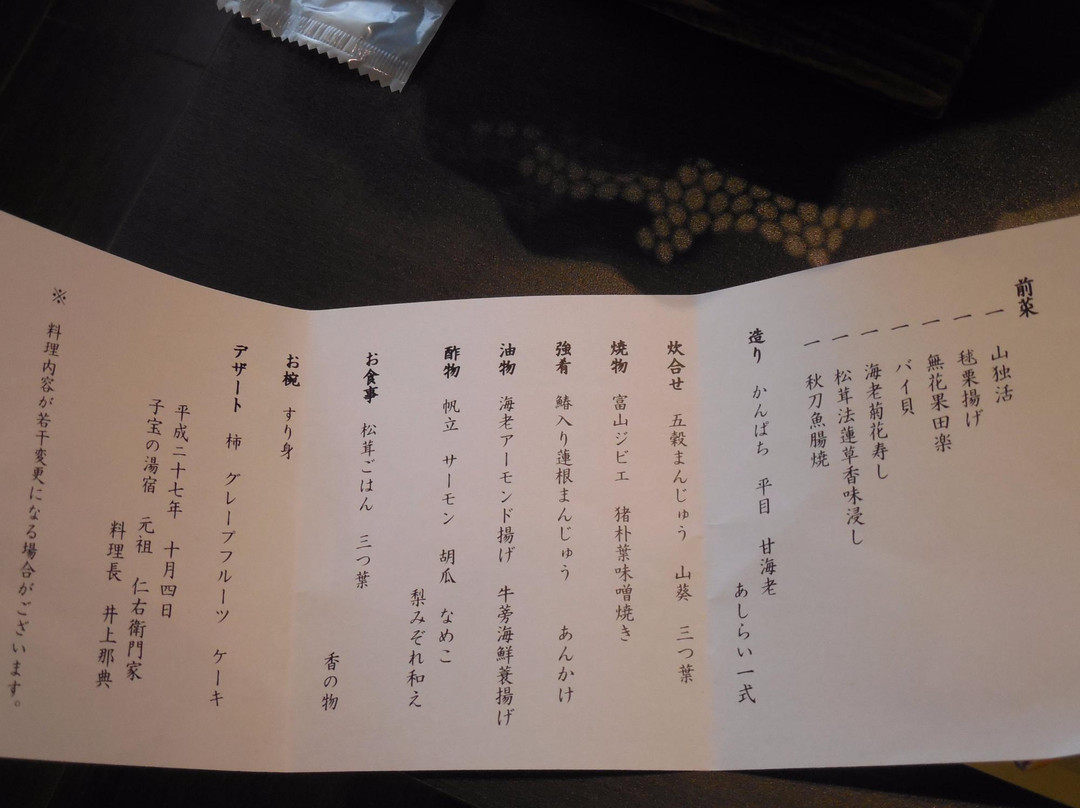 前菜
一 山独活
一 毬栗揚げ
一 無花果田楽
一 バイ貝
一 海老菊花寿し
一 松茸法蓮草香味浸し
一 秋刀魚腸焼
造り かんぱち 平目 甘海老
あしらい一式
炊合せ 五穀まんじゅう 山葵 三つ葉
焼物 富山ジビエ 猪朴葉味噌焼き
強肴 鰆入り蓮根まんじゅう あんかけ
油物 海老アーモンド揚げ 牛蒡海鮮蓑揚げ
酢物 帆立 サーモン 胡瓜 なめこ
梨みぞれ和え
お食事 松茸ごはん 三つ葉
香の物
お椀 すり身
デザート 柿 グレープフルーツ ケーキ
平成二十七年 十月四日
子宝の湯宿 元祖 仁右衛門家
料理長 井上那典
※ 料理内容が若干変更になる場合がございます。